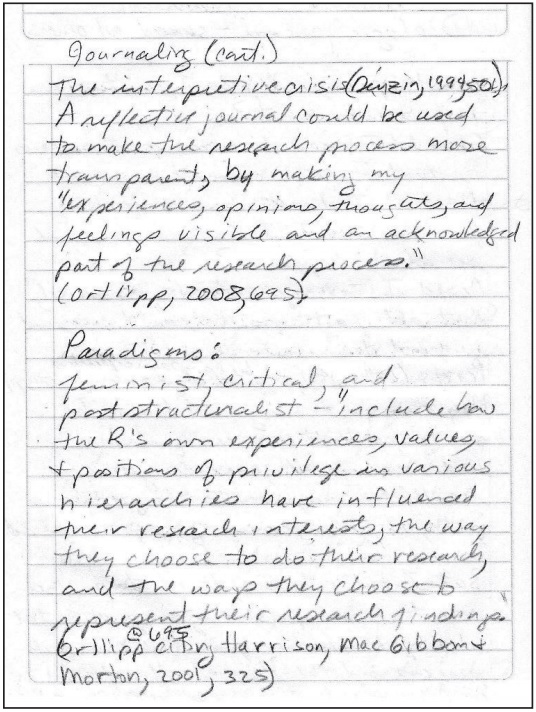 Journaling (cont.)
The interpretive crisis (Denzin, 1994, 501).
A reflective journal could be used
to make the research process more
transparent, by making my
"experiences, opinions, thoughts, and
feelings visible and an acknowledged
part of the research process."
(Ortlipp, 2008, 695).
Paradigms:
feminist, critical, and
poststructuralist - "include how
the R's own experiences, values,
+ positions of privilege in various
hierarchies have influenced
their research interests, the way
they choose to do their research,
and the ways they choose to
represent their research findings"
@ 695
(Ortlipp citing Harrison, MacGibbon +
Morton, 2001, 325)